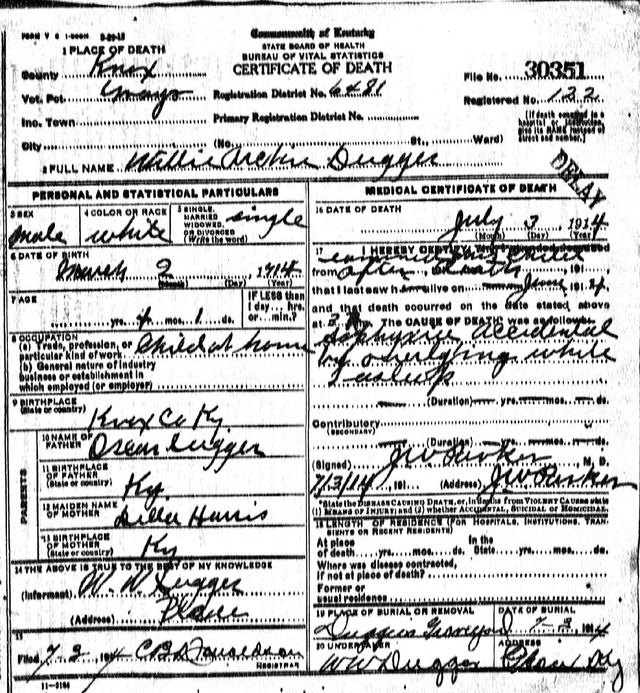 FORM V S 1-500M 3-20-13
Commonwealth of Kentucky
STATE BOARD OF HEALTH
BUREAU OF VITAL STATISTICS
CERTIFICATE OF DEATH
1 PLACE OF DEATH
County Knox
Vot. Pct. Grays
Inc. Town
City (No. St., Ward)
Registration District No. 6481
Primary Registration District No.
File No. 30351
Registered No. 122
(If death occurred in a hospital or institution, give its NAME instead of street and number.)
2 FULL NAME Willie Archie Dugger
DELAY
PERSONAL AND STATISTICAL PARTICULARS
3 SEX male
4 COLOR OR RACE white
5 SINGLE, MARRIED WIDOWED, OR DIVORCED (Write the word) single
6 DATE OF BIRTH
March 2 1914
(Month) (Day) (Year)
7 AGE
yrs. 4 mos. 1 ds.
IF LESS than 1 day... hrs. or min.?
8 OCCUPATION
(a) Trade, profession, or particular kind of work child at home
(b) General nature of industry business or establishment in which employed (or employer)
9 BIRTHPLACE
(State or country) Knox Co Ky
PARENTS
10 NAME OF FATHER Oscar Dugger
11 BIRTHPLACE OF FATHER (State or country) Ky.
12 MAIDEN NAME OF MOTHER Harris
13 BIRTHPLACE OF MOTHER (State or country) Ky
14 THE ABOVE IS TRUE TO THE BEST OF MY KNOWLEDGE
(Informant) W. W. Dugger
(Address)
15
Filed 7-3 1914
REGISTRAR
11-3184
MEDICAL CERTIFICATE OF DEATH
16 DATE OF DEATH
July 3 1914
(Month) (Day) (Year)
17 I HEREBY CERTIFY, That I attended deceased
from after death 191
that I last saw h alive on June 1914
and that death occurred on the date stated above
at m. The CAUSE OF DEATH was as follows:
Asphyxia accidental
by overlying while
asleep
(Duration) yrs. mos. ds.
Contributory
(SECONDARY)
(Duration) yrs. mos. ds.
(Signed) J W Parker M. D.
7/3/14 191 (Address) J W Parker
*State the DISEASE CAUSING DEATH, or, in Deaths from VIOLENT CAUSES state
(1) MEANS OF INJURY; and (2) whether ACCIDENTAL, SUICIDAL or HOMICIDAL.
18 LENGTH OF RESIDENCE (FOR HOSPITALS, INSTITUTIONS, TRANSIENTS OR RECENT RESIDENTS)
At place of death yrs. mos. ds. In the State yrs. mos. ds.
Where was disease contracted,
if not at place of death?
Former or
usual residence
19 PLACE OF BURIAL OR REMOVAL
Duggers Graveyard
DATE OF BURIAL
7-3 1914
20 UNDERTAKER
W W Dugger
ADDRESS
Ky